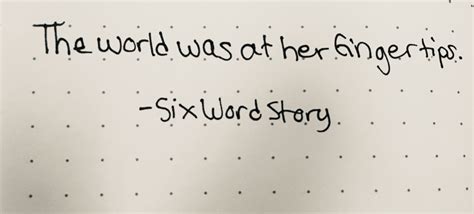 The world was at her fingertips.
-Six Word Story.